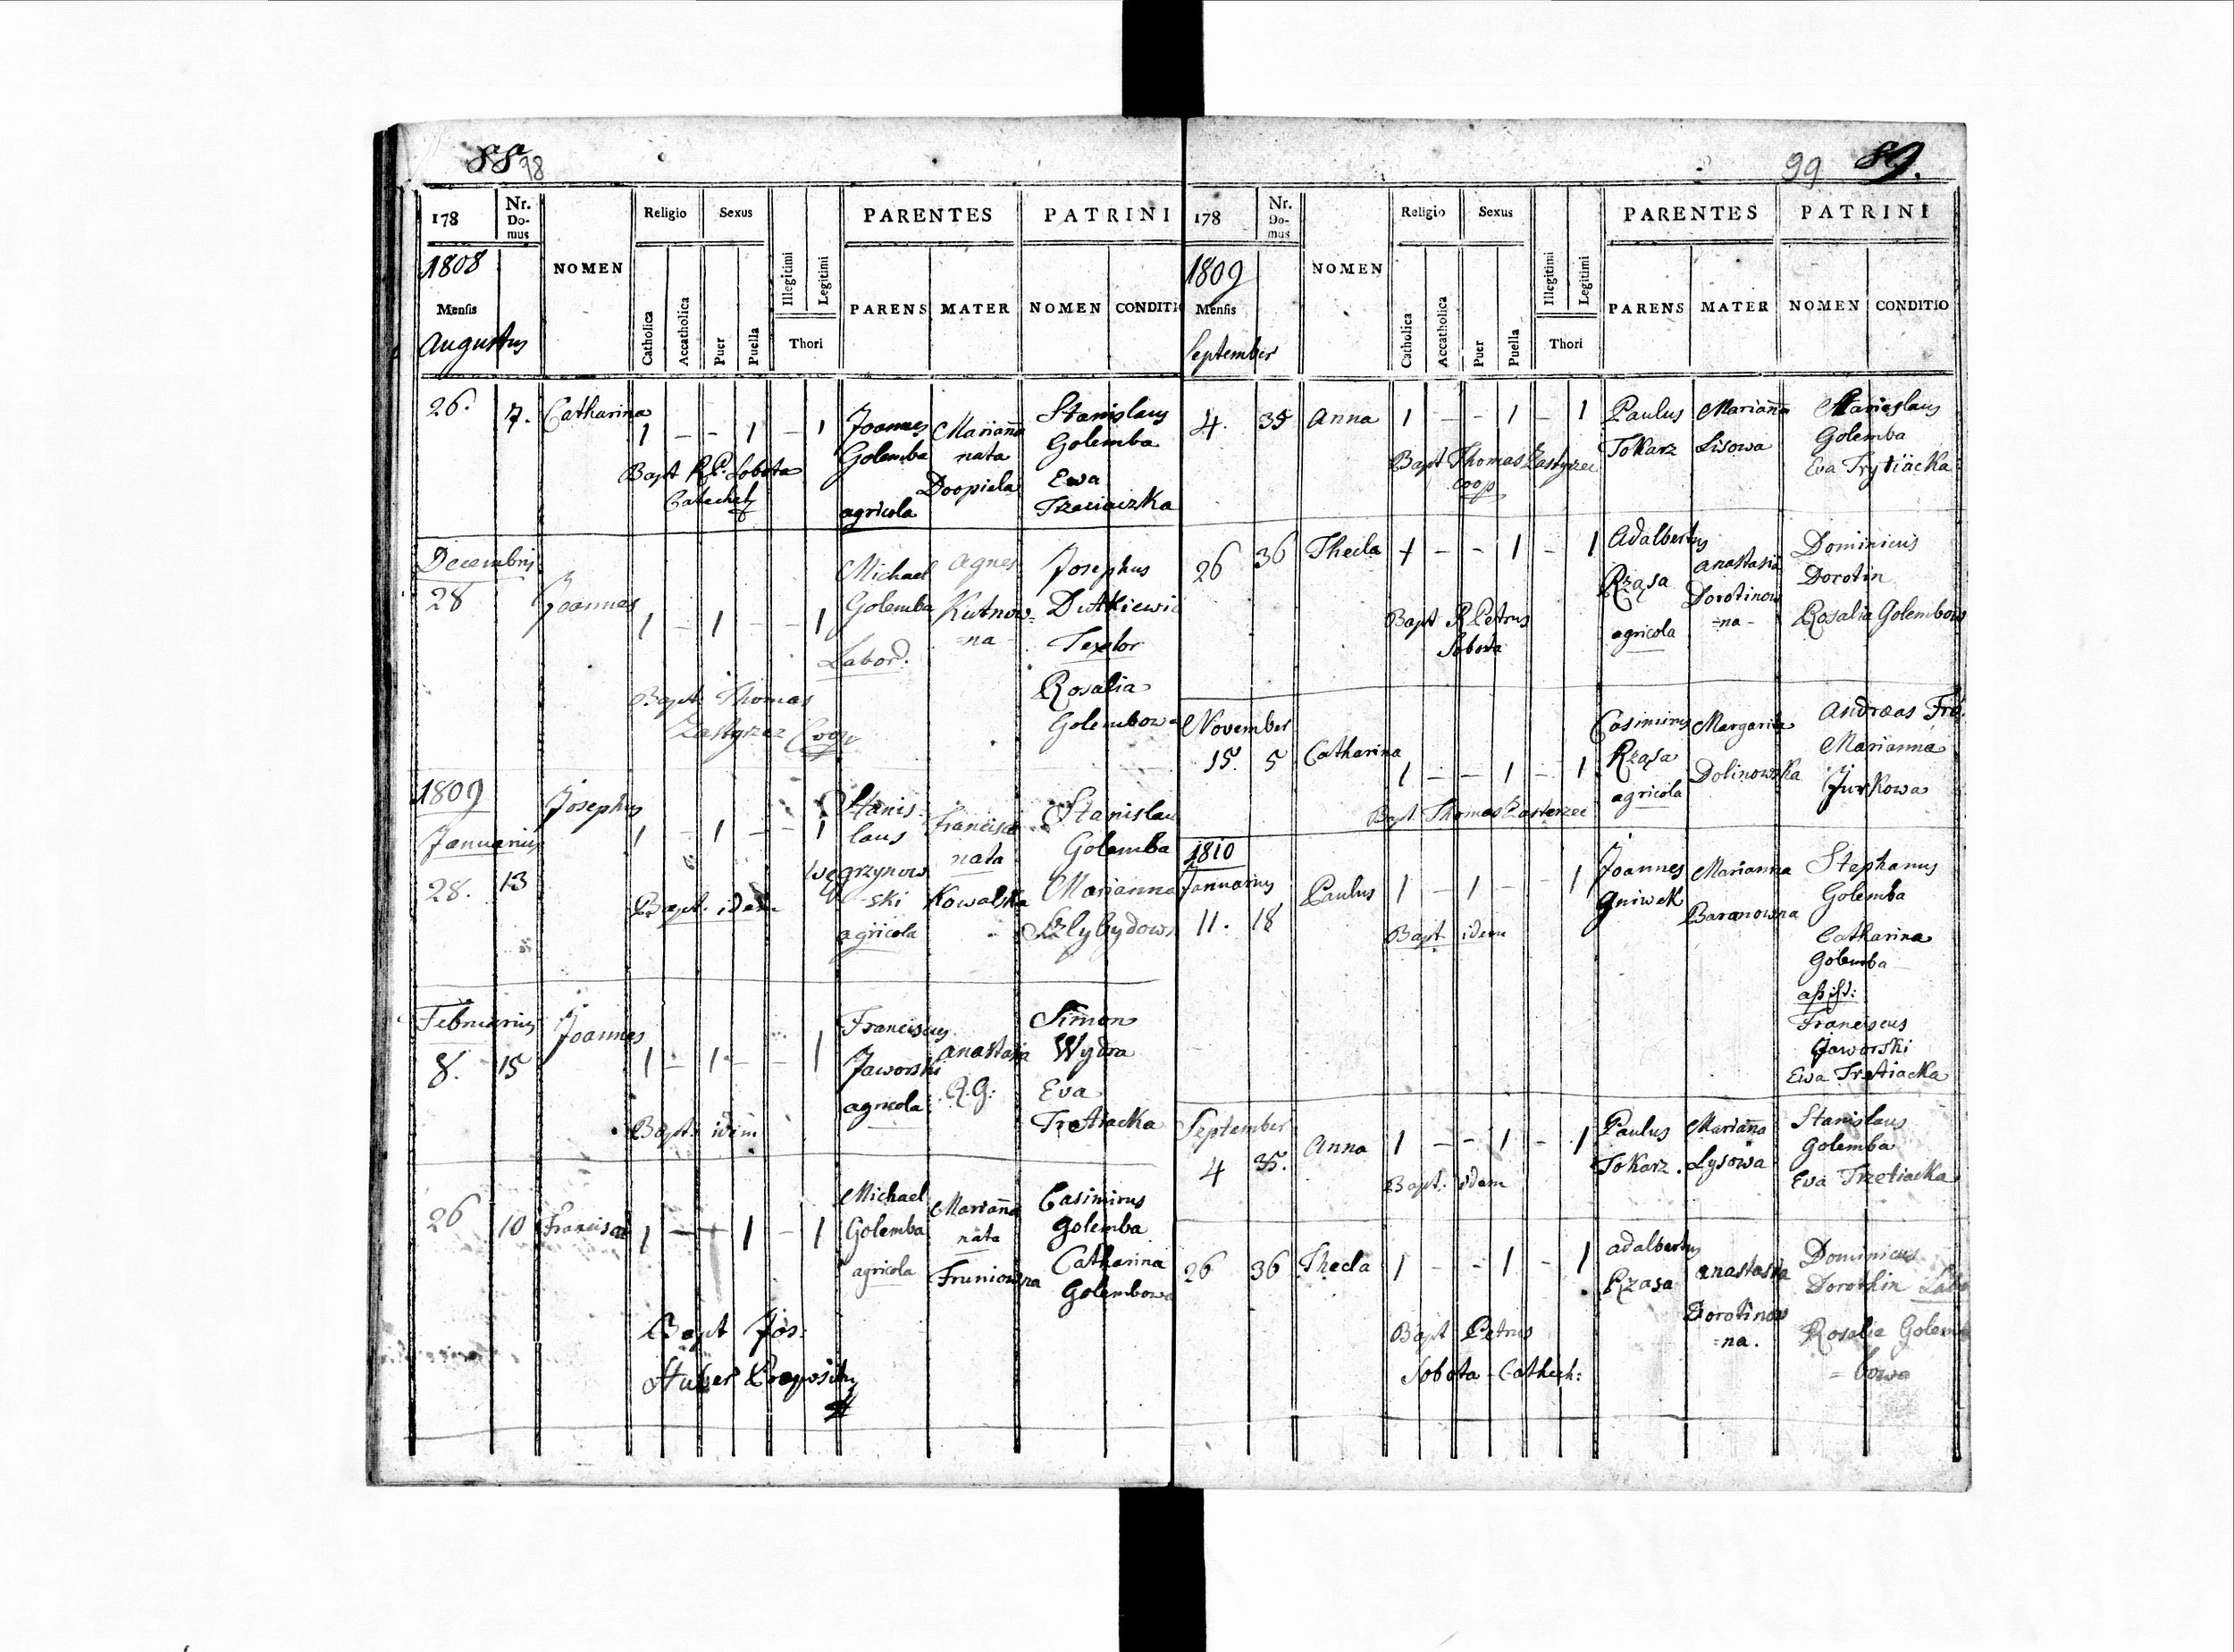 88 98
178 Nr. Do- mus NOMEN Religio Sexus Illegitimi Legitimi PARENTES PATRINI
1808
Mensis Catholica Accatholica Puer Puella Thori PARENS MATER NOMEN CONDITI
Augustus
26. 7. Catharina 1 – – 1 – 1 Joannes Marianna Stanislaus
Golemba nata Golemba
Bapt R.P. Sobota Doopiela Ewa
Catechet agricola Trzeciaczka
Decembris
28 Joannes 1 – 1 – – 1 Michael Agnes Josephus
Golemba Kutnow= Dutkiewic
Labor. =na Textor
Bapt Thomas Rosalia
Zastyrzec Coop Golembowa
1809
Januarius Josephus 1 – 1 – – 1 Stanis- Francisca Stanislau
28. 13 laus nata Golemba
Węgrzynow Kowalska Marianna
Bapt. idem ski
agricola
Februarius
8. 15 Joannes 1 – 1 – – 1 Franciscus Anastasia Simon
Jaworski R.G: Wydra
agricola Eva
Bapt. idem Tretiacka
26 10 Francisca 1 – + 1 – 1 Michael Marianna Casimirus
Golemba nata Golemba
agricola Fruniowna Catharina
Golembowa
Bapt Jos:
Huber Præpositus
99 89.
178 Nr. Do- mus NOMEN Religio Sexus Illegitimi Legitimi PARENTES PATRINI
1809
Mensis Catholica Accatholica Puer Puella Thori PARENS MATER NOMEN CONDITIO
September
4. 35 Anna 1 – – 1 – 1 Paulus Marianna Stanislaus
Tokarz Lisowa Golemba
Bapt Thomas Zastyrzec Eva Trytiacka
Coop
26 36 Thecla + – – 1 – 1 Adalbertus Anastasia Dominicus
Rząsa Dorotinow Dorotin
Bapt R Petrus agricola =na- Rosalia Golembow
Sobota
November
15. 5 Catharina 1 – – 1 – 1 Casimirus Margarita Andreas
Rząsa Dolinowska Marianna
agricola Jurkowa
Bapt Thomas Zasterzec
1810
Januarius
11. 18 Paulus 1 – 1 – – 1 Joannes Marianna Stephanus
Gniwek Baranowna Golemba
Bapt. idem Catharina
Golemba
assist:
Franciscus
Jaworski
Ewa Tretiacka
September
4 35. Anna 1 – – 1 – 1 Paulus Marianna Stanislaus
Tokarz. Lysowa Golemba
Bapt: idem Eva Trzetiacka
26 36 Thecla 1 – – 1 – 1 Adalbertus Anastasia Dominicus
Rzasa Dorotinow Dorothin Labo
=na. Rosalia Golem
Bapt Petrus = bowa
Sobota Cathech: